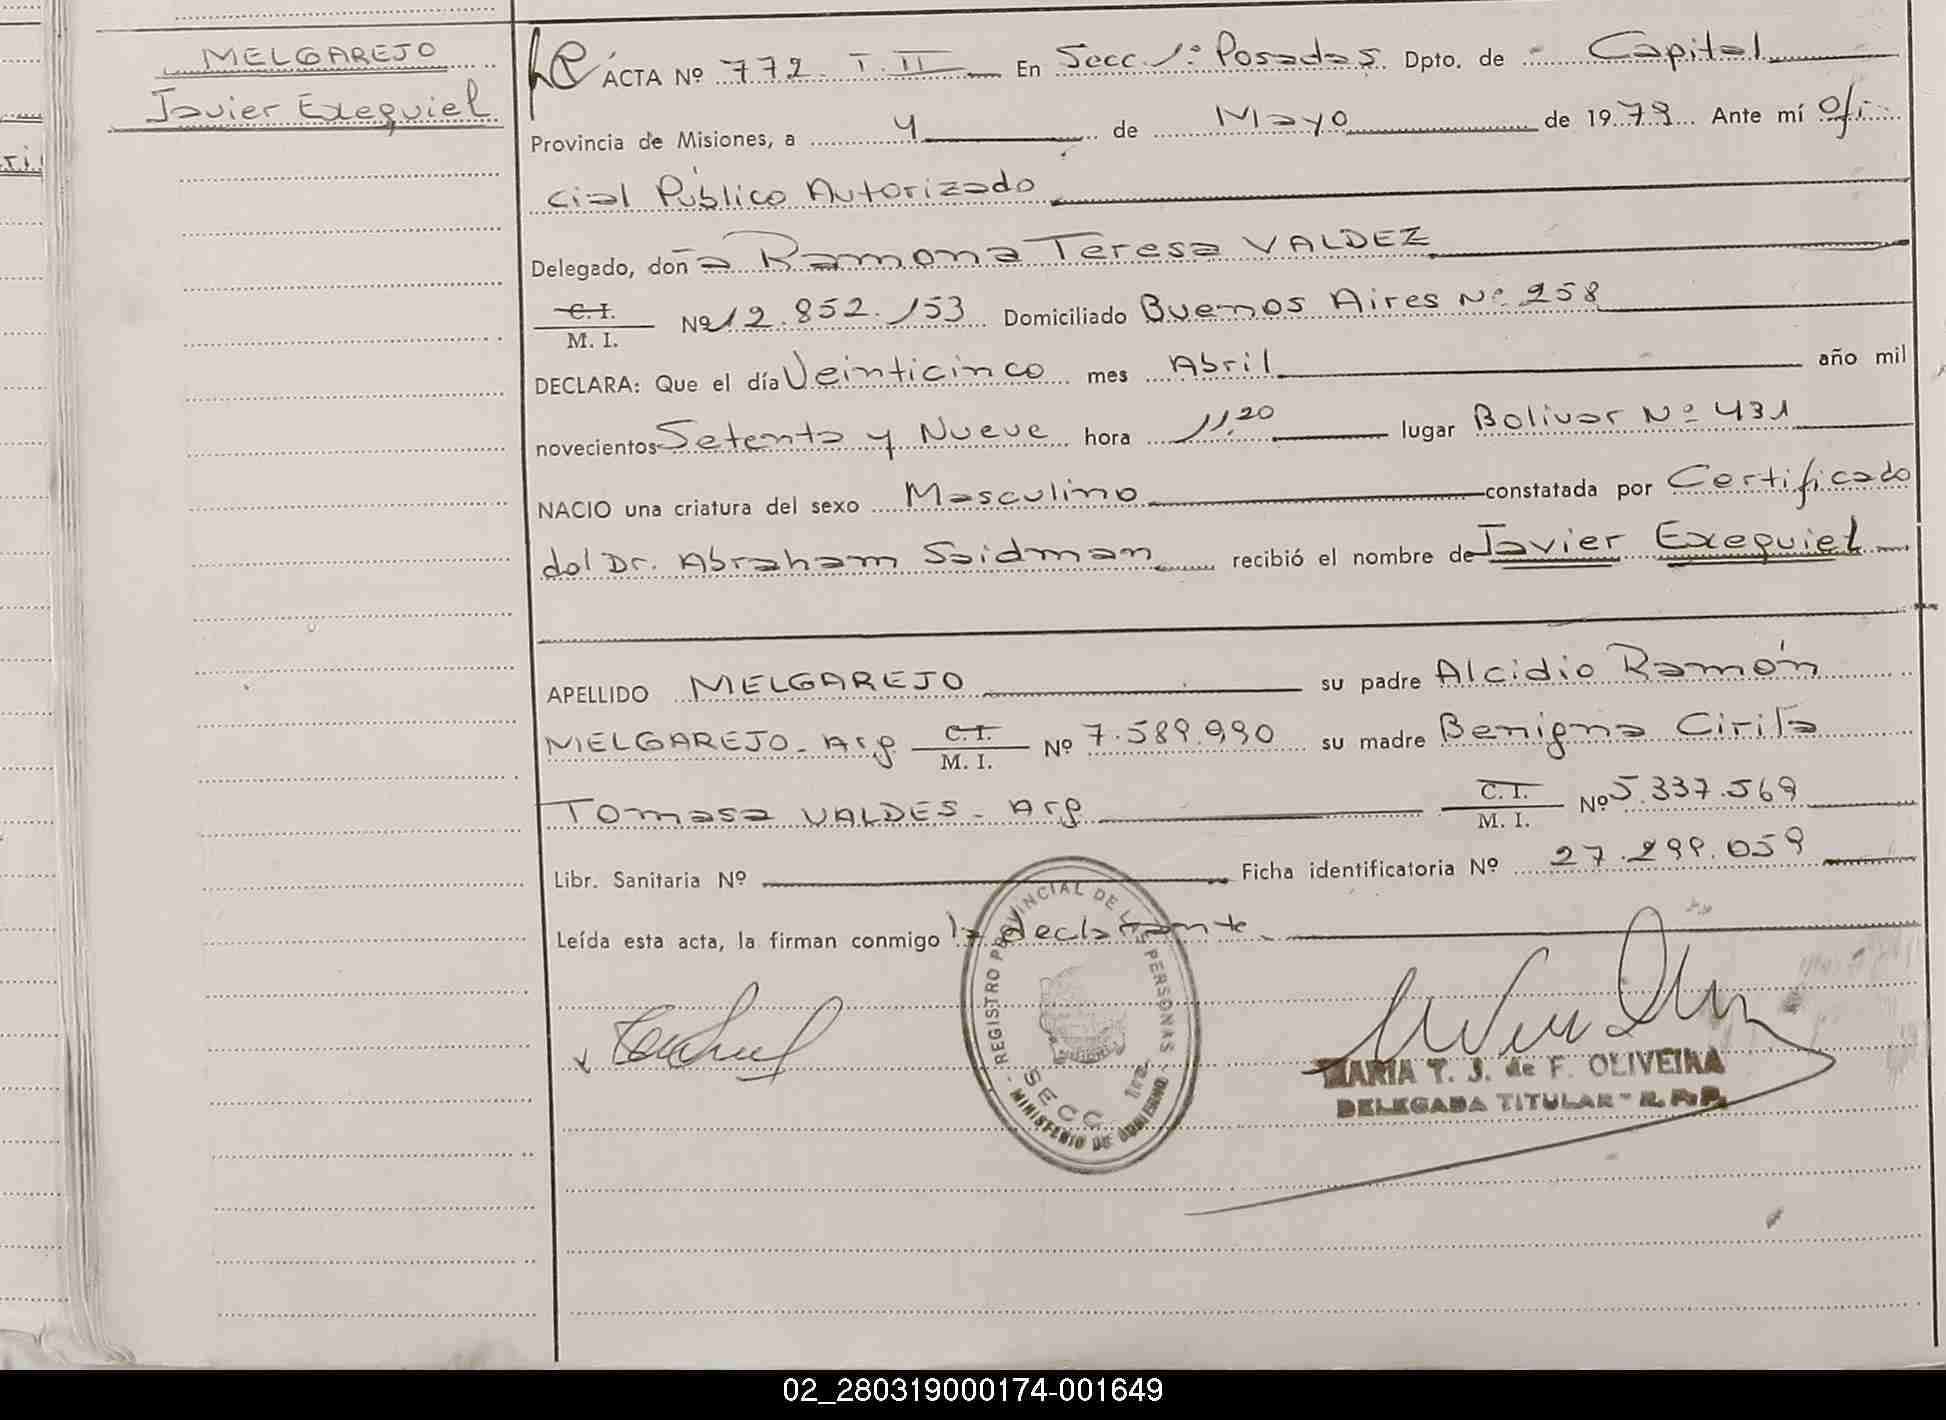 MELGAREJO
Javier Exequiel
ACTA Nº 772. T. II En Secc. 1ª Posadas Dpto. de Capital
Provincia de Misiones, a 4 de Mayo de 1979 Ante mí Ofi
cial Público Autorizado
Delegado, doña Ramona Teresa VALDEZ
C. I.
M. I. Nº 12.852.153 Domiciliado Buenos Aires Nº 258
DECLARA: Que el día Veinticinco mes Abril año mil
novecientos Setenta y Nueve hora 11,20 lugar Bolivar Nº 431
NACIO una criatura del sexo Masculino constatada por Certificado
del Dr. Abraham Saidman recibió el nombre de Javier Exequiel
APELLIDO MELGAREJO su padre Alcidio Ramón
MELGAREJO - Arg C. I. M. I. Nº 7.589.990 su madre Benigna Cirila
Tomasa VALDES - Arg C. I. M. I. Nº 5.337.569
Libr. Sanitaria Nº Ficha identificatoria Nº 27.299.059
Leída esta acta, la firman conmigo la declarante
REGISTRO PROVINCIAL DE LAS PERSONAS
SECC 1ra.
MINISTERIO DE GOBIERNO
MARIA T. J. de F. OLIVEIRA
DELEGADA TITULAR - R. P. P.
02_280319000174-001649